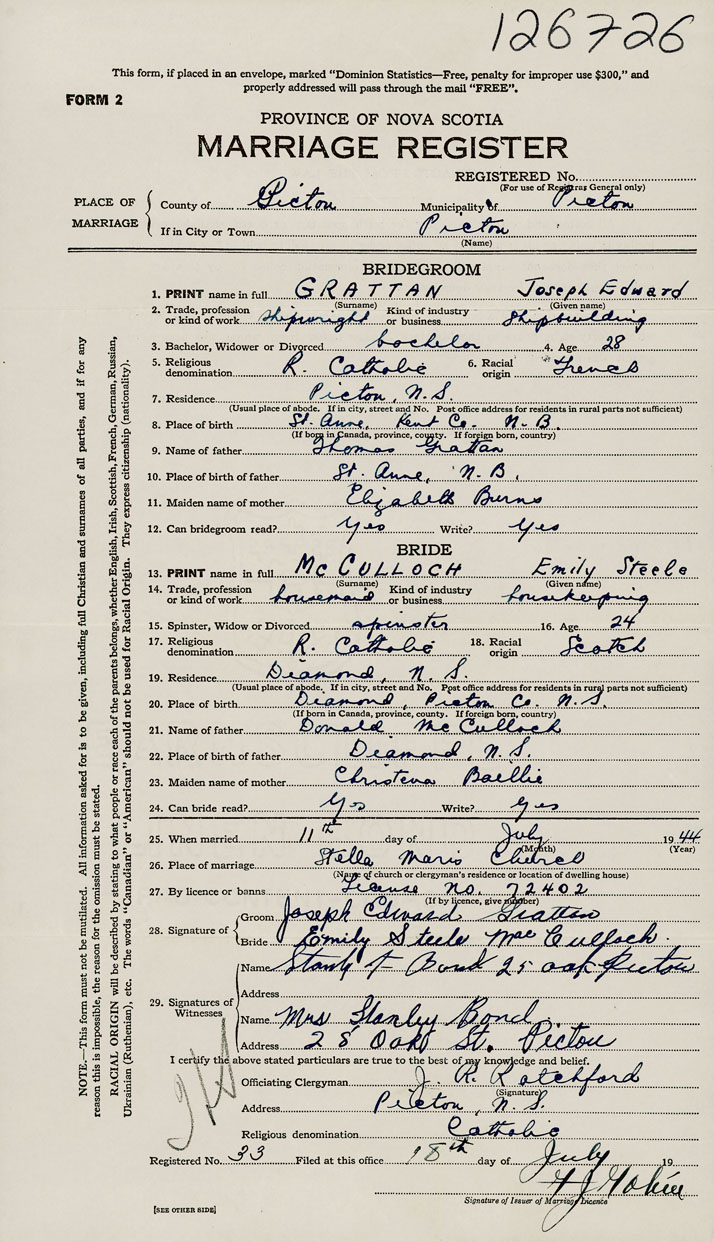 126726
This form, if placed in an envelope, marked "Dominion Statistics—Free, penalty for improper use $300," and
properly addressed will pass through the mail "FREE".
FORM 2
PROVINCE OF NOVA SCOTIA
MARRIAGE REGISTER
REGISTERED No.
(For use of Registrar General only)
PLACE OF MARRIAGE
County of Pictou Municipality of Pictou
If in City or Town Pictou
(Name)
BRIDEGROOM
1. PRINT name in full GRATTAN Joseph Edward
(Surname) (Given name)
2. Trade, profession or kind of work shipwright Kind of industry or business Shipbuilding
3. Bachelor, Widower or Divorced bachelor 4. Age 28
5. Religious denomination R. Catholic 6. Racial origin French
7. Residence Pictou, N.S.
(Usual place of abode. If in city, street and No. Post office address for residents in rural parts not sufficient)
8. Place of birth St. Anne, Kent Co. N.B.
(If born in Canada, province, county. If foreign born, country)
9. Name of father Thomas Grattan
10. Place of birth of father St. Anne, N.B.
11. Maiden name of mother Elizabeth Burns
12. Can bridegroom read? Yes Write? Yes
BRIDE
13. PRINT name in full McCULLOCH Emily Steele
(Surname) (Given name)
14. Trade, profession or kind of work housemaid Kind of industry or business housekeeping
15. Spinster, Widow or Divorced spinster 16. Age 24
17. Religious denomination R. Catholic 18. Racial origin Scotch
19. Residence Diamond, N.S.
(Usual place of abode. If in city, street and No. Post office address for residents in rural parts not sufficient)
20. Place of birth Diamond, Pictou Co. N.S.
(If born in Canada, province, county. If foreign born, country)
21. Name of father Donald McCulloch
22. Place of birth of father Diamond, N.S.
23. Maiden name of mother Christena Baillie
24. Can bride read? Yes Write? Yes
25. When married 11th day of July 1944
(Month) (Year)
26. Place of marriage Stella Maris Church
(Name of church or clergyman's residence or location of dwelling house)
27. By licence or banns License no. 72402
(If by licence, give number)
28. Signature of Groom Joseph Edward Grattan
Bride Emily Steele MacCulloch.
29. Signatures of Witnesses
Name Bond 25 oak Pictou
Address
Name Mrs Stanley Bond
Address 25 Oak St. Pictou
I certify the above stated particulars are true to the best of my knowledge and belief.
Officiating Clergyman J. R. Ratchford
(Signature)
Address Pictou, N.S.
Religious denomination Catholic
Registered No. 33 Filed at this office 18th day of July 19
Signature of Issuer of Marriage Licence
[SEE OTHER SIDE]
NOTE.—This form must not be mutilated. All information asked for is to be given, including full Christian and surnames of all parties, and if for any
reason this is impossible, the reason for the omission must be stated.
RACIAL ORIGIN will be described by stating to what people or race each of the parents belongs, whether English, Irish, Scottish, French, German, Russian,
Ukrainian (Ruthenian), etc. The words "Canadian" or "American" should not be used for Racial Origin. They express citizenship (nationality).